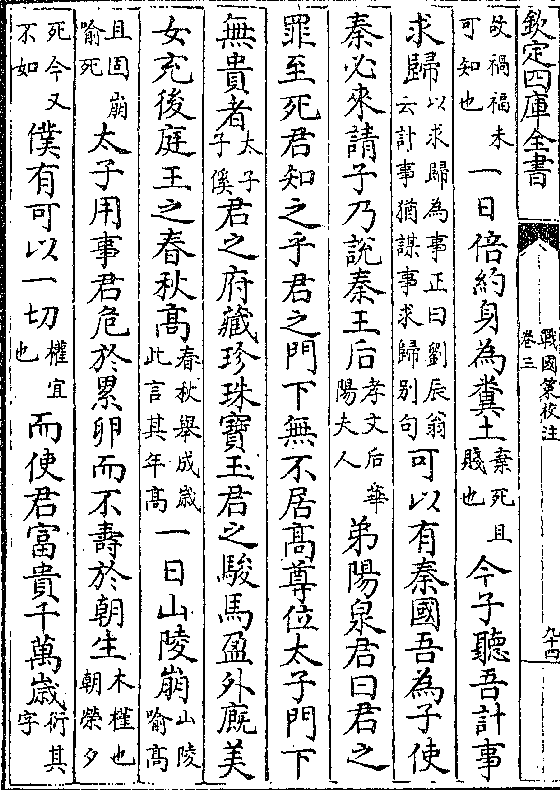 欽定四庫全書
戰國策校注
卷三
九十四
故禍福未可知也一日倍約身為糞土棄死且賤也今子聽吾計事
求歸以求歸為事正曰劉辰翁云計事猶謀事求歸別句可以有秦國吾為子使
秦必來請子乃說秦王后孝文后華陽夫人弟陽泉君曰君之
罪至死君知之乎君之門下無不居髙尊位太子門下
無貴者太子子傒君之府藏珍珠寶玉君之駿馬盈外廐美
女充後庭王之春秋髙春秋舉成歲此言其年髙一日山陵崩山陵喻髙
且固崩喻死太子用事君危於累卵而不壽於朝生木槿也朝榮夕
死今又不如僕有可以一切權宜也而使君富貴千萬歲衍其字